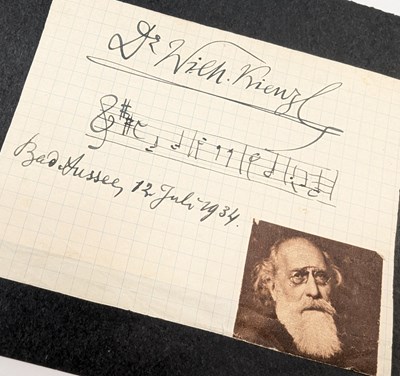 Dr Wilh. Kienzl
Bad Aussee, 12. Juli 1934.